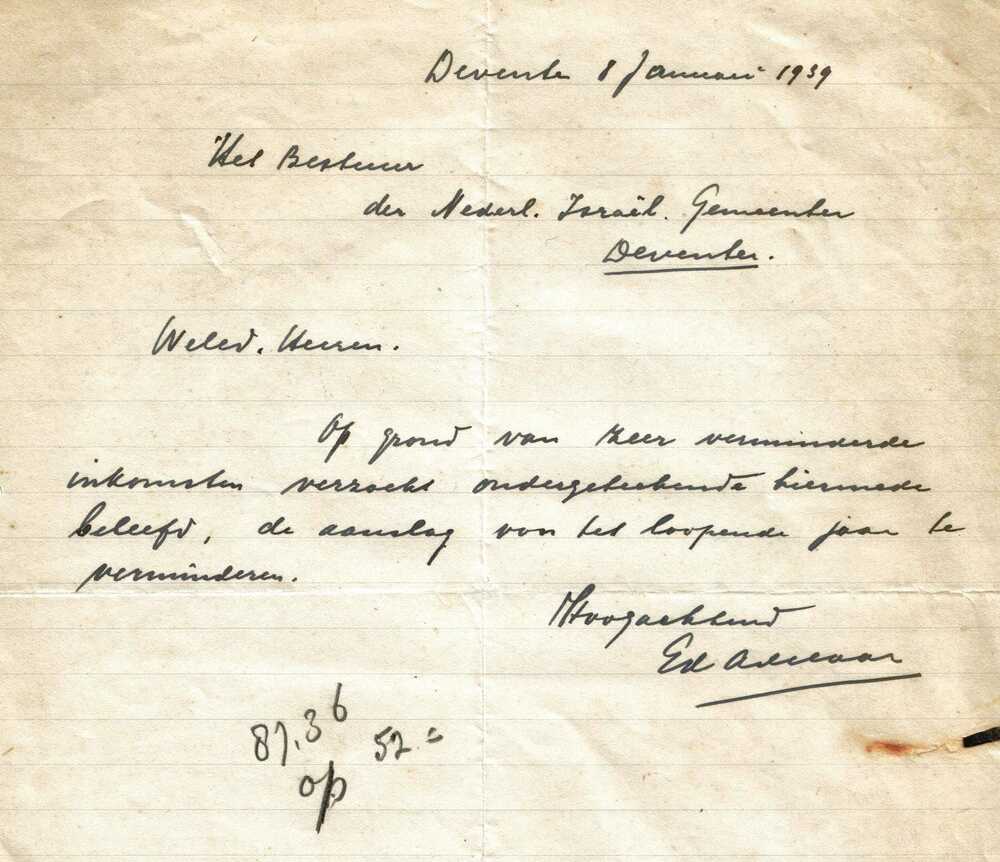 Deventer 8 Januari 1939
Het Bestuur
der Nederl. Israël. Gemeenter
Deventer.
Weled. Heeren.
Op grond van zeer verminderde
inkomsten verzoekt ondergeteekende hiermede
beleefd, de aanslag van het loopende jaar te
verminderen.
Hoogachtend
Ed
87.36 52.=
op